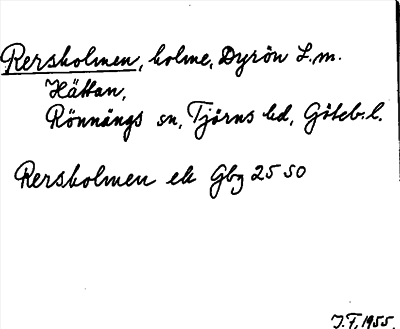 Rersholmen, holme, Dyrön S.m.
Hättan,
Rönnängs sn, Tjörns hd, Göteb. l.
Rersholmen ek Gbg 25 SO
J.F. 1955.